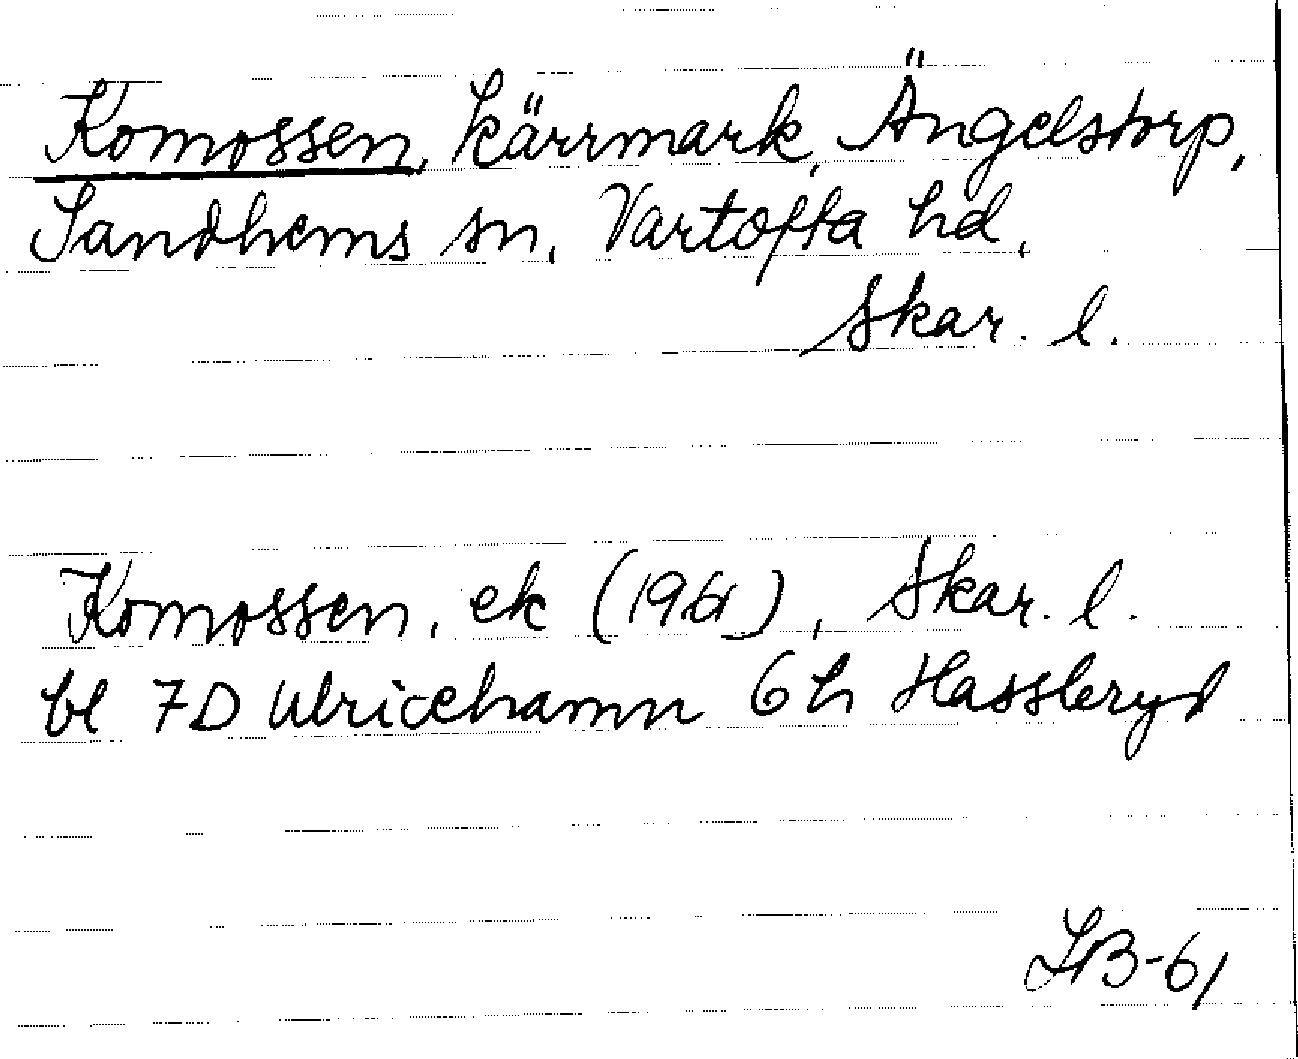 Komossen, kärrmark, Ängelstorp,
Sandhems sn, Vartofta hd,
Skar. l.
Komossen, ek (1961), Skar. l.
bl 7D Ulricehamn 6h Hassleryd
LB-61